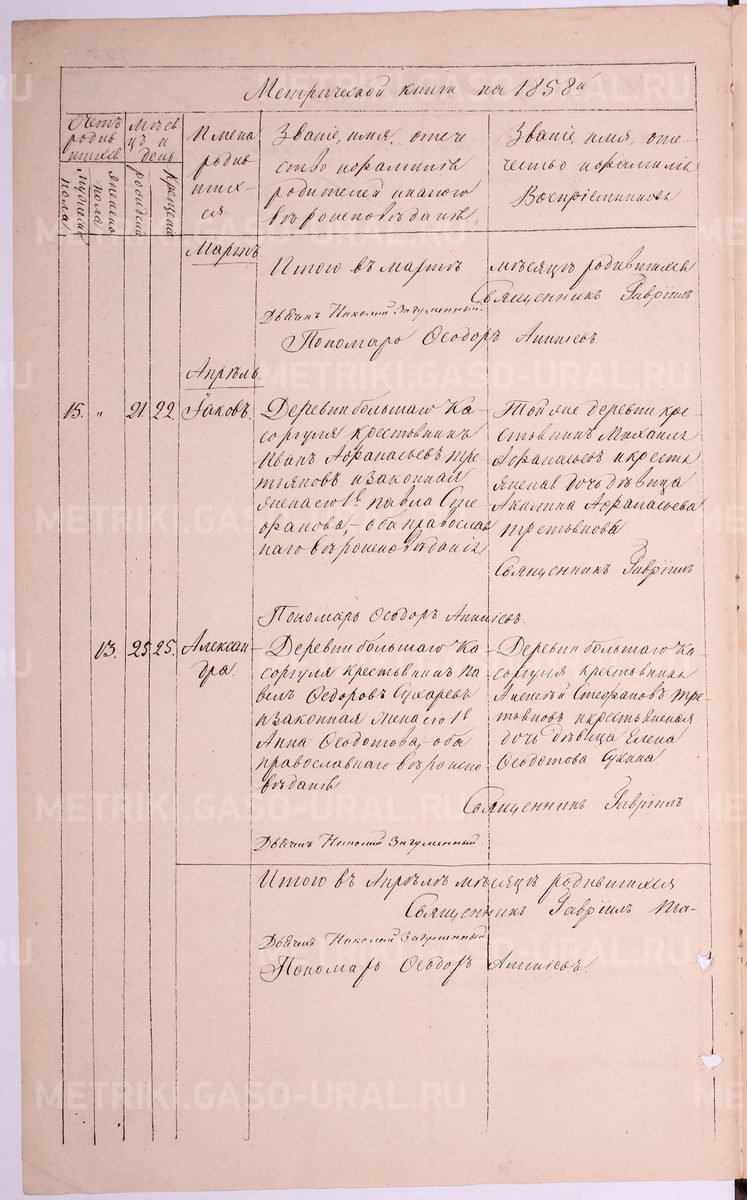 Метрической книги на 1858й
Счетъ родившихся
Мужеска пола
Женска пола
Мѣсяцъ и день
рожденія
Крещенія
Имена родившихся.
Званіе, имя, отече
ство и фамилія
родителей и какого
вѣроисповѣданія.
Званіе, имя, оте
чество и фамилія
Воспріемниковъ
Мартъ
Итого въ мартѣ мѣсяцѣ родившихся
Священникъ Гавріилъ
Дьячекъ Николай Загуменный.
Пономарь Ѳеодоръ
Апрѣль
15. " 21 22. Іаковъ.
Деревни большаго Ка
соргуля крестьянинъ
Иванъ Афанасьевъ Тре
тьяковъ и законная
жена его 1го Павла Сте
фанова, – оба православ
наго вѣроисповѣданія
Той же деревни кре
стьянинъ Михаилъ
Афанасьевъ и кресть
янская дочь дѣвица
Акилина Афанасьева
Третьякова
Священникъ Гавріилъ
Пономарь Ѳеодоръ
13. 25 25. Алексан-
дра.
Деревни большаго Ка
соргуля крестьянинъ Па
велъ Ѳедоровъ Сухаревъ
и законная жена его 1го
Анна Ѳеодотова, – оба
православнаго вѣроиспо
вѣданія
Деревни большаго Ка
соргуля крестьянинъ
Алексѣй Стефановъ Тре
тьяковъ и крестьянская
дочь дѣвица Елена
Ѳеодотова Сукина
Священникъ Гавріилъ
Дьячекъ Николай Загуменный.
Итого въ Апрѣлѣ мѣсяцѣ родившихся
Священникъ Гавріилъ
Дьячекъ Николай Загуменный
Пономарь Ѳеодоръ
METRIKI.GASO-URAL.RU